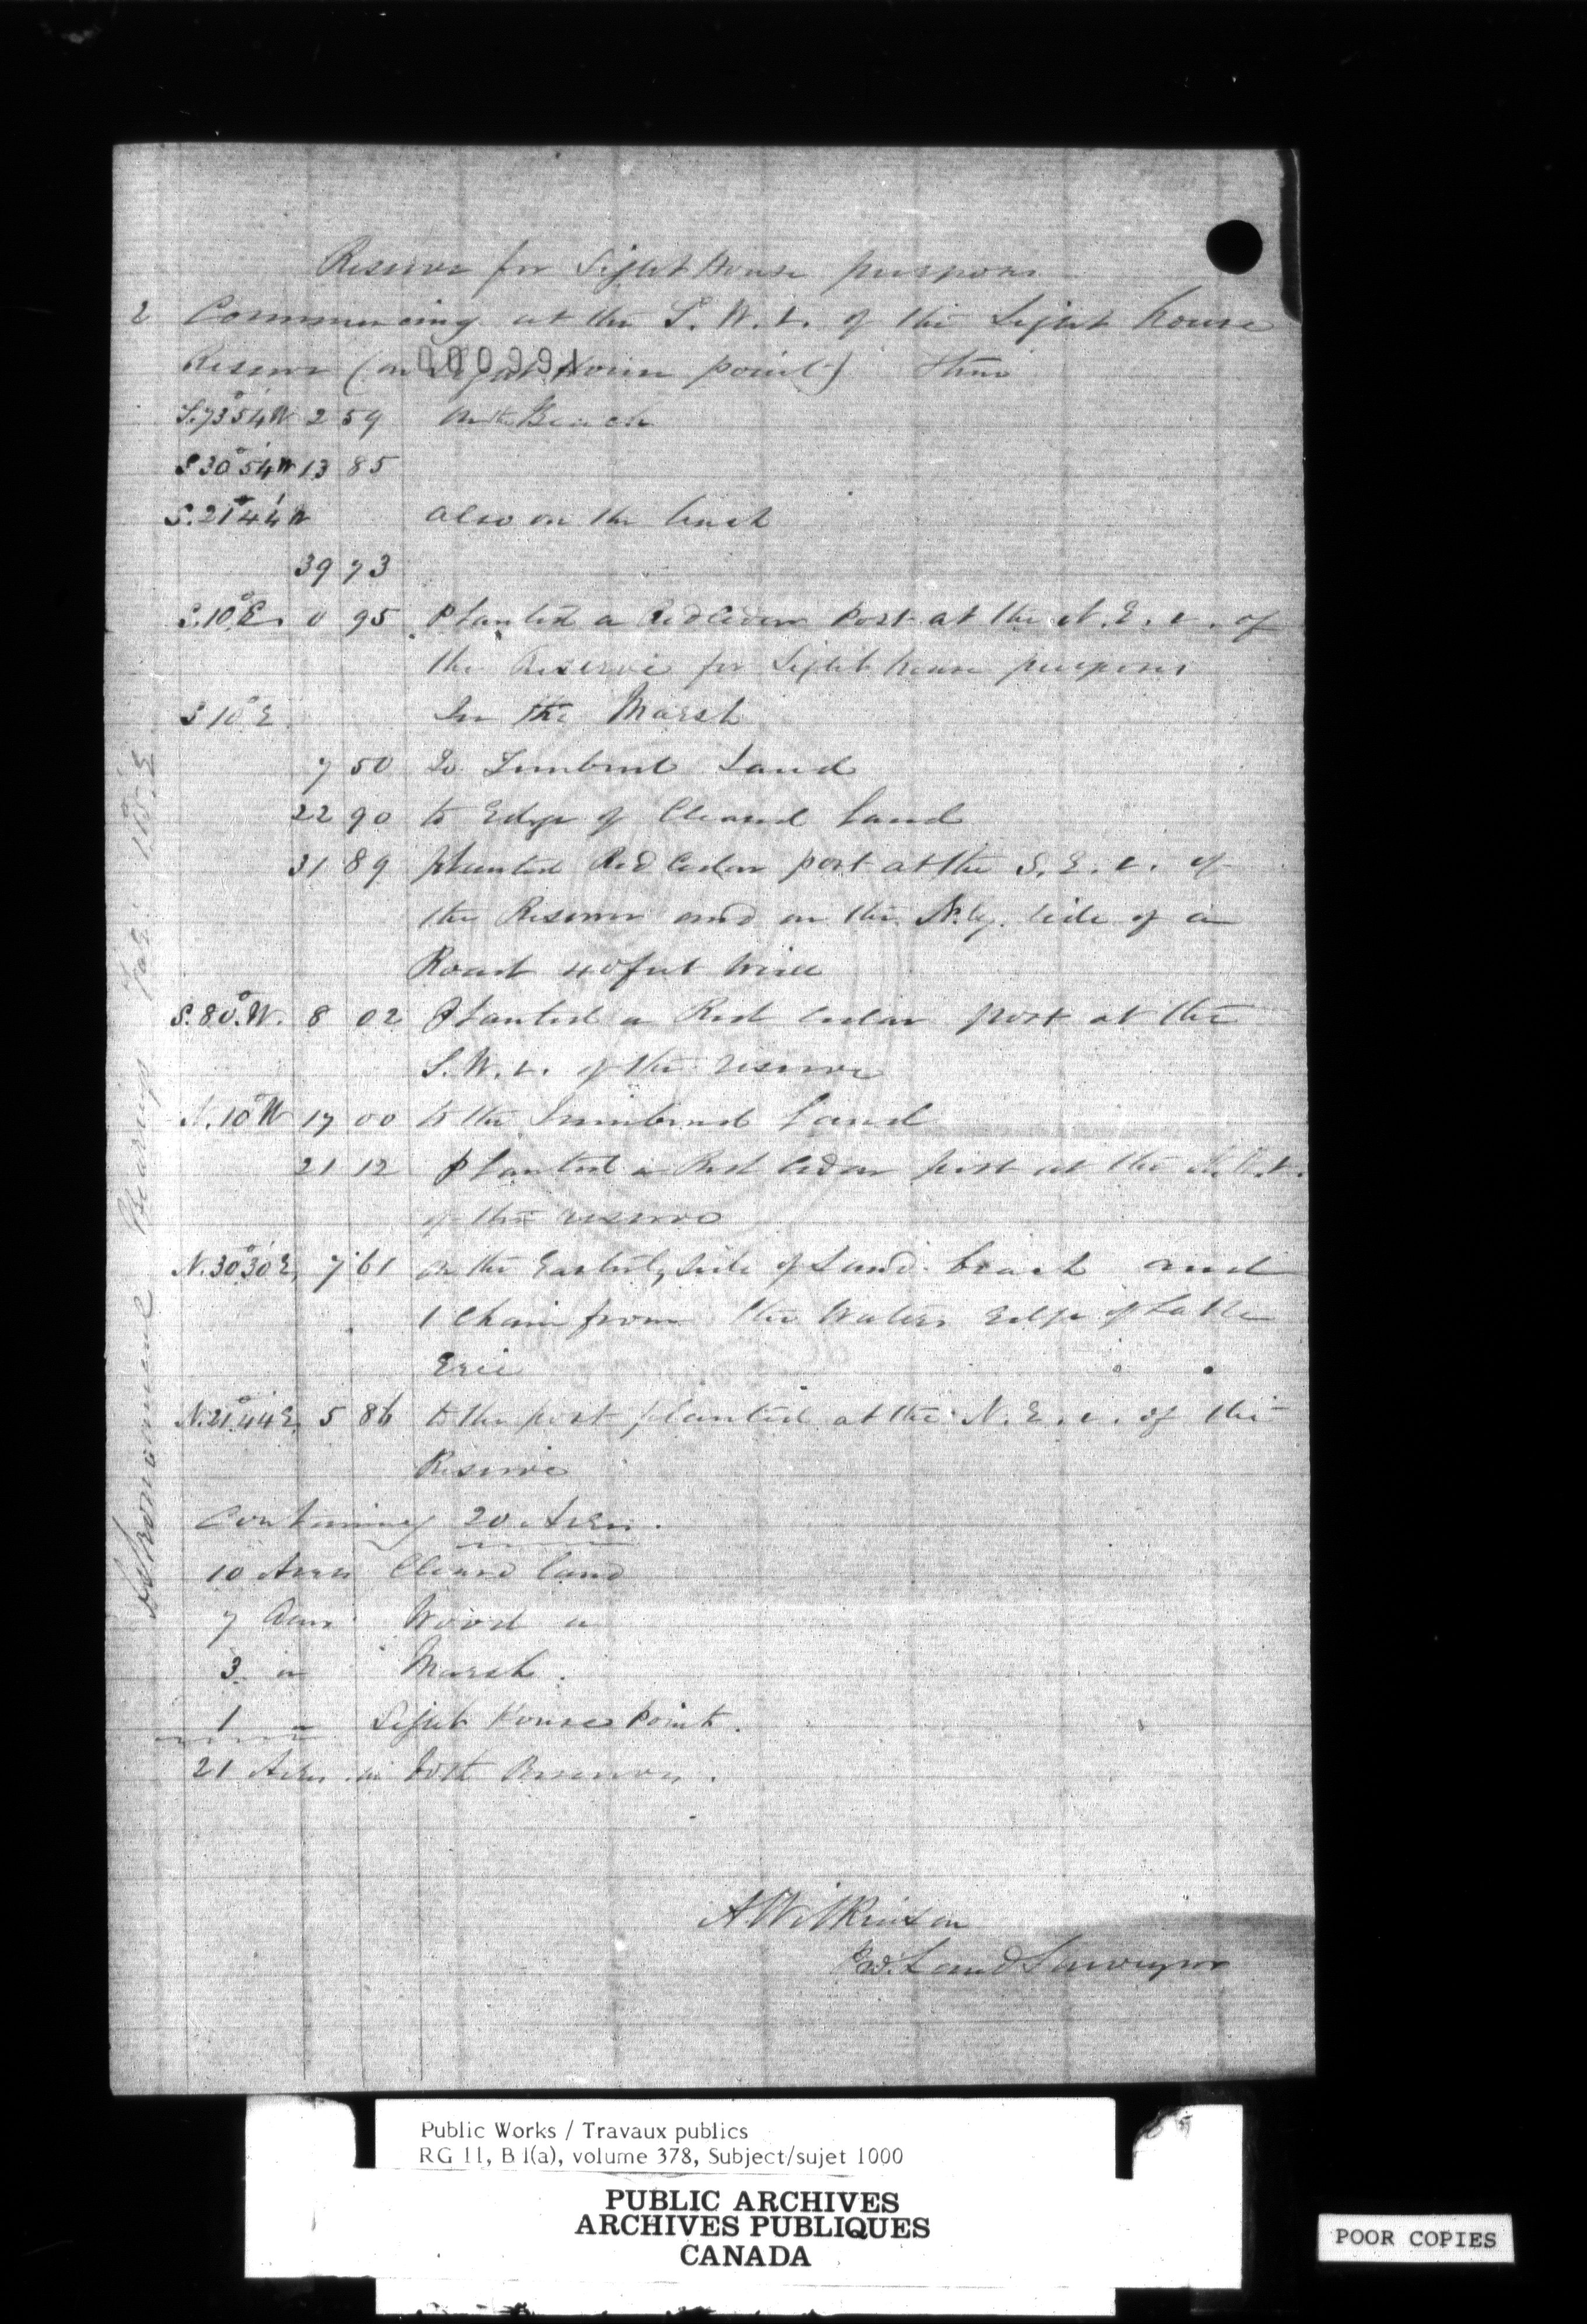 Reserve for Light House purposes
2 Commencing at the S. W. c. of the Light house
Reserve (on Light House point) thence
000991
S.73°54'W 2 59 on the Beach
S 30°54'W 13 85
S.21°44'W also on the beach
39 73
S.10°E. 0 95 Planted a Red Cedar Post at the N. E. c. of
the Reserve for Light house purposes
S 10°E In the Marsh
7 50 To Timbered Land
22 90 to Edge of Cleared Land
31 89 planted Red Cedar post at the S. E. c. of
the Reserve and on the N.ly. side of a
Road 40 feet wide
S.80°W. 8 02 Planted a Red Cedar post at the
S. W. c. of the reserve
N.10°W 17 00 to the Timbered Land
21 12 Planted a Red Cedar post at the N.W.c.
of the reserve
N.30°30'E, 7 61 on the Easterly side of Sand beach and
1 Chain from the Waters Edge of Lake
Erie
N.21°44'E, 5 86 to the post planted at the N. E. c. of the
Reserve
Containing 20 Acres.
10 Acres Cleard land
7 Acres Wood
3 Marsh.
1 " Light House Point.
21 Acres in both Reserves.
Astronomical Bearings 1°15'.E
A Wilkinson
Pro. Land Surveyor
Public Works / Travaux publics
RG 11, B 1(a), volume 378, Subject/sujet 1000
PUBLIC ARCHIVES
ARCHIVES PUBLIQUES
CANADA
POOR COPIES